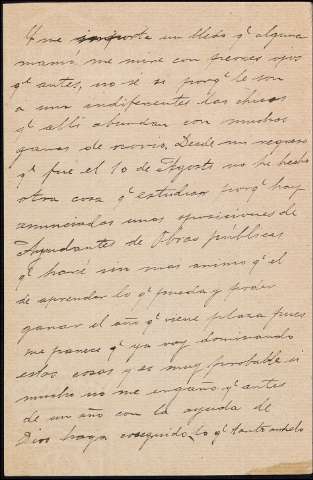 Y me importa un bledo qᵉ alguna
mamá me mire con peores ojos
qᵉ antes, no sé si porqᵉ le son
a uno indiferentes las chicas
qᵉ allí abundan con muchas
ganas de novio. Desde mi regreso
qᵉ fue el 10 de Agosto no he hecho
otra cosa qᵉ estudiar porqᵉ hay
anunciadas unas oposiciones de
Ayudantes de Obras públicas
qᵉ haré sin mas animo qᵉ el
de aprender lo qᵉ pueda y poder
ganar el año qᵉ viene plaza pues
me parece qᵉ ya voy dominando
estas cosas y es muy probable si
mucho no me engaño qᵉ antes
de un año con la ayuda de
Dios haya conseguido lo qᵉ tanto anhelo